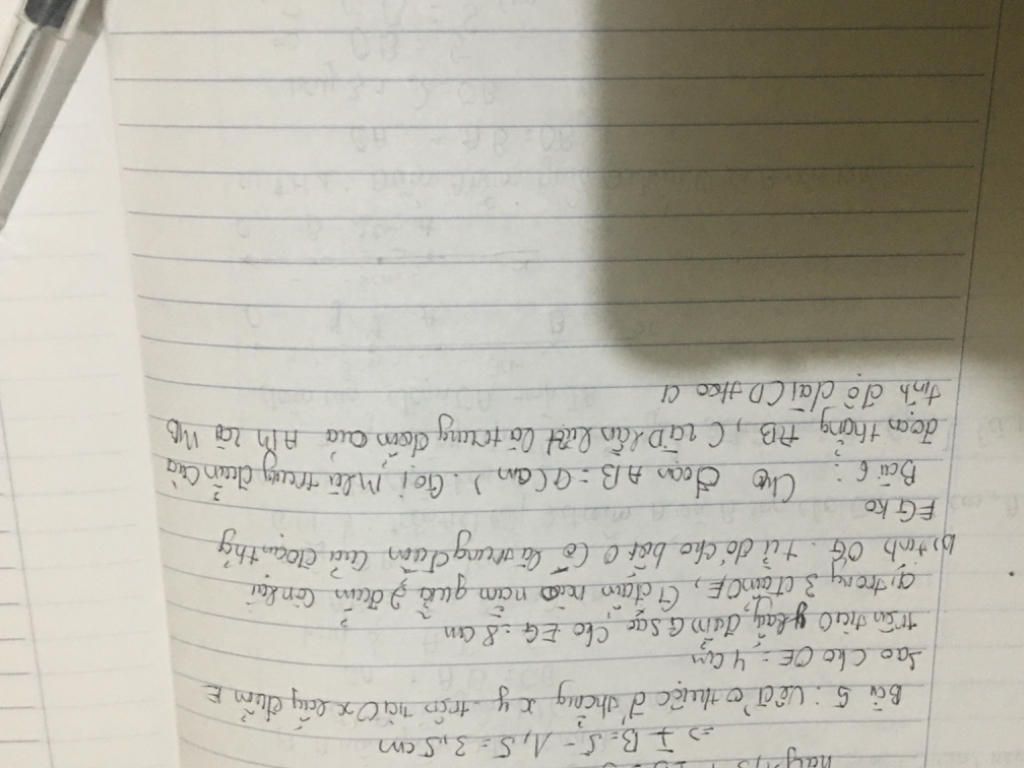 hay
=> IB = 5 - 1,5 = 3,5 cm
Bài 5: Vẽ O thuộc đ' thẳng xy. trên tia Ox lấy điểm E
sao cho OE = 4 cm
trên tia Oy lấy điểm G sao cho EG = 8 cm
a, trong 3 điểm OE, G điểm nào nằm giữa 2 điểm còn lại
b, tính OG. từ đó cho biết O có là trung điểm của đoạn thg
EG ko
Bài 6: Cho đoạn AB = a (cm). Gọi M là trung điểm của
đoạn thẳng AB, C và D lần lượt là trung điểm của AM và MB
tính độ dài CD theo a